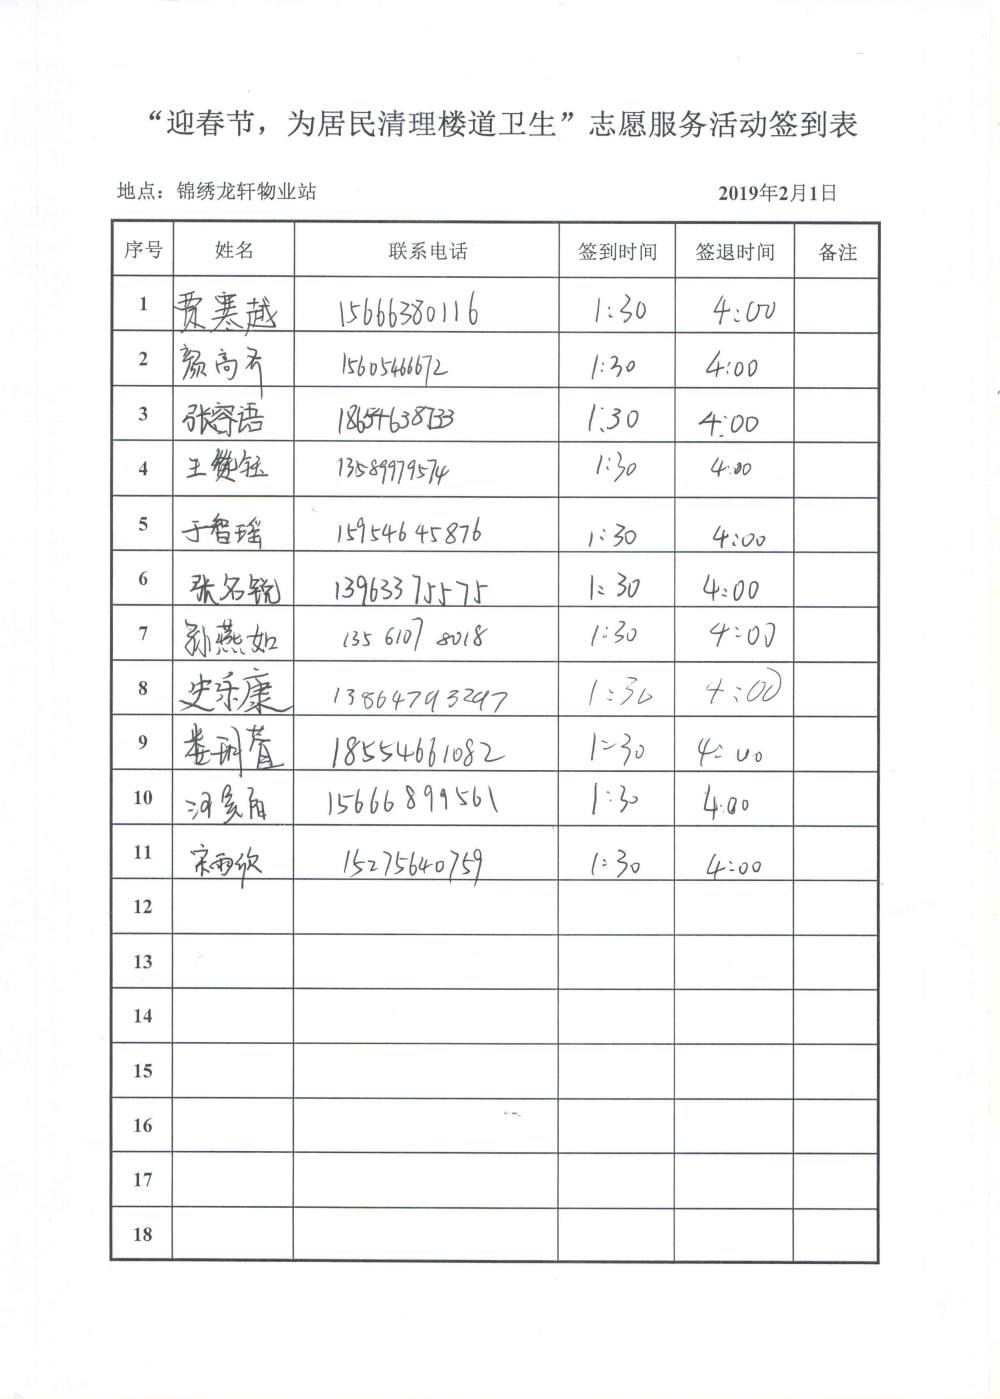 “迎春节，为居民清理楼道卫生”志愿服务活动签到表
地点：锦绣龙轩物业站 2019年2月1日
序号 姓名 联系电话 签到时间 签退时间 备注
1 贾寒越 15666380116 1:30 4:00
2 颜高 15605466672 1:30 4:00
3 张容语 18654638733 1:30 4:00
4 王赞钰 13589979574 1:30 4:00
5 于智瑶 15954645876 1:30 4:00
6 张名锐 13963375575 1:30 4:00
7 孙燕如 13561078018 1:30 4:00
8 史乐康 13864793297 1:30 4:00
9 娄玥萱 18554661082 1:30 4:00
10 15666899561 1:30 4:00
11 宋雨欣 15275640759 1:30 4:00
12
13
14
15
16
17
18